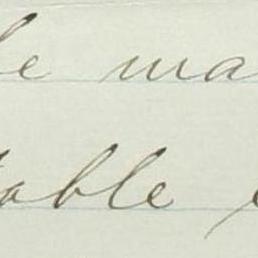 le ma
table